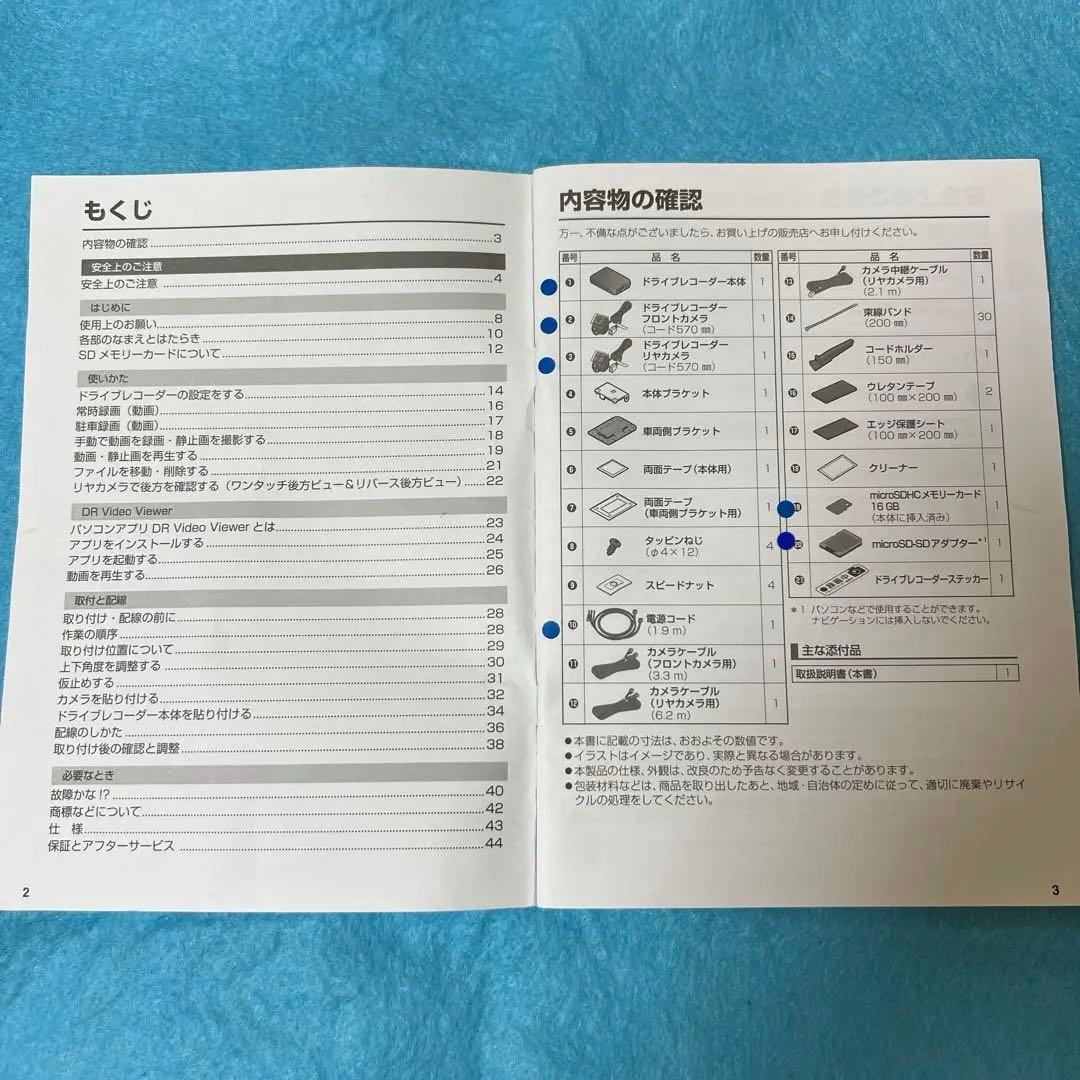 もくじ
内容物の確認 3
安全上のご注意
安全上のご注意 4
はじめに
使用上のお願い 8
各部のなまえとはたらき 10
SDメモリーカードについて 12
使いかた
ドライブレコーダーの設定をする 14
常時録画（動画） 16
駐車録画（動画） 17
手動で動画を録画・静止画を撮影する 18
動画・静止画を再生する 19
ファイルを移動・削除する 21
リヤカメラで後方を確認する（ワンタッチ後方ビュー＆リバース後方ビュー） 22
DR Video Viewer
パソコンアプリ DR Video Viewer とは 23
アプリをインストールする 24
アプリを起動する 25
動画を再生する 26
取付と配線
取り付け・配線の前に 28
作業の順序 28
取り付け位置について 29
上下角度を調整する 30
仮止めする 31
カメラを貼り付ける 32
ドライブレコーダー本体を貼り付ける 34
配線のしかた 36
取り付け後の確認と調整 38
必要なとき
故障かな!? 40
商標などについて 42
仕 様 43
保証とアフターサービス 44
2
内容物の確認
万一、不備な点がございましたら、お買い上げの販売店へお申し付けください。
番号 品 名 数量
❶ ドライブレコーダー本体 1
❷ ドライブレコーダー
フロントカメラ
（コード570 ㎜） 1
❸ ドライブレコーダー
リヤカメラ
（コード570 ㎜） 1
❹ 本体ブラケット 1
❺ 車両側ブラケット 1
❻ 両面テープ（本体用） 1
❼ 両面テープ
（車両側ブラケット用） 1
❽ タッピンねじ
（φ4×12） 4
❾ スピードナット 4
❿ 電源コード
（1.9 m） 1
⓫ カメラケーブル
（フロントカメラ用）
（3.3 m） 1
⓬ カメラケーブル
（リヤカメラ用）
（6.2 m） 1
番号 品 名 数量
⓭ カメラ中継ケーブル
（リヤカメラ用）
（2.1 m） 1
⓮ 束線バンド
（200 ㎜） 30
⓯ コードホルダー
（150 ㎜） 1
⓰ ウレタンテープ
（100 ㎜×200 ㎜） 2
⓱ エッジ保護シート
（100 ㎜×200 ㎜） 1
⓲ クリーナー 1
microSDHCメモリーカード
16 GB
（本体に挿入済み） 1
microSD-SDアダプター*1 1
㉑ ドライブレコーダーステッカー 1
*1 パソコンなどで使用することができます。
ナビゲーションには挿入しないでください。
主な添付品
取扱説明書（本書） 1
●本書に記載の寸法は、おおよその数値です。
●イラストはイメージであり、実際と異なる場合があります。
●本製品の仕様、外観は、改良のため予告なく変更することがあります。
●包装材料などは、商品を取り出したあと、地域・自治体の定めに従って、適切に廃棄やリサイ
クルの処理をしてください。
3